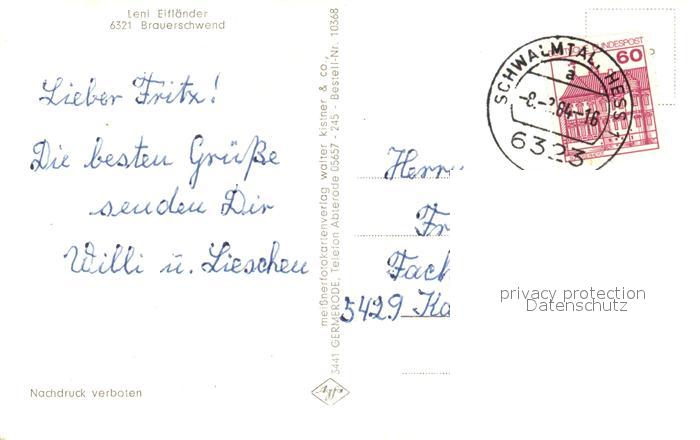 Leni Eifländer
6321 Brauerschwend
Lieber Fritz!
Die besten Grüße
senden Dir
Willi u. Lieschen
Nachdruck verboten
meißnerfotokartenverlag walter kistner & co.,
3441 GERMERODE, Telefon Abterode 05657 - 245 · Bestell-Nr. 10368
Agfa
DEUTSCHE BUNDESPOST
60
SCHWALMTAL, HESS 1
a
-8.-2.84-16
6323
Herrn
Fr
Fach
5429 Ka
privacy protection
Datenschutz